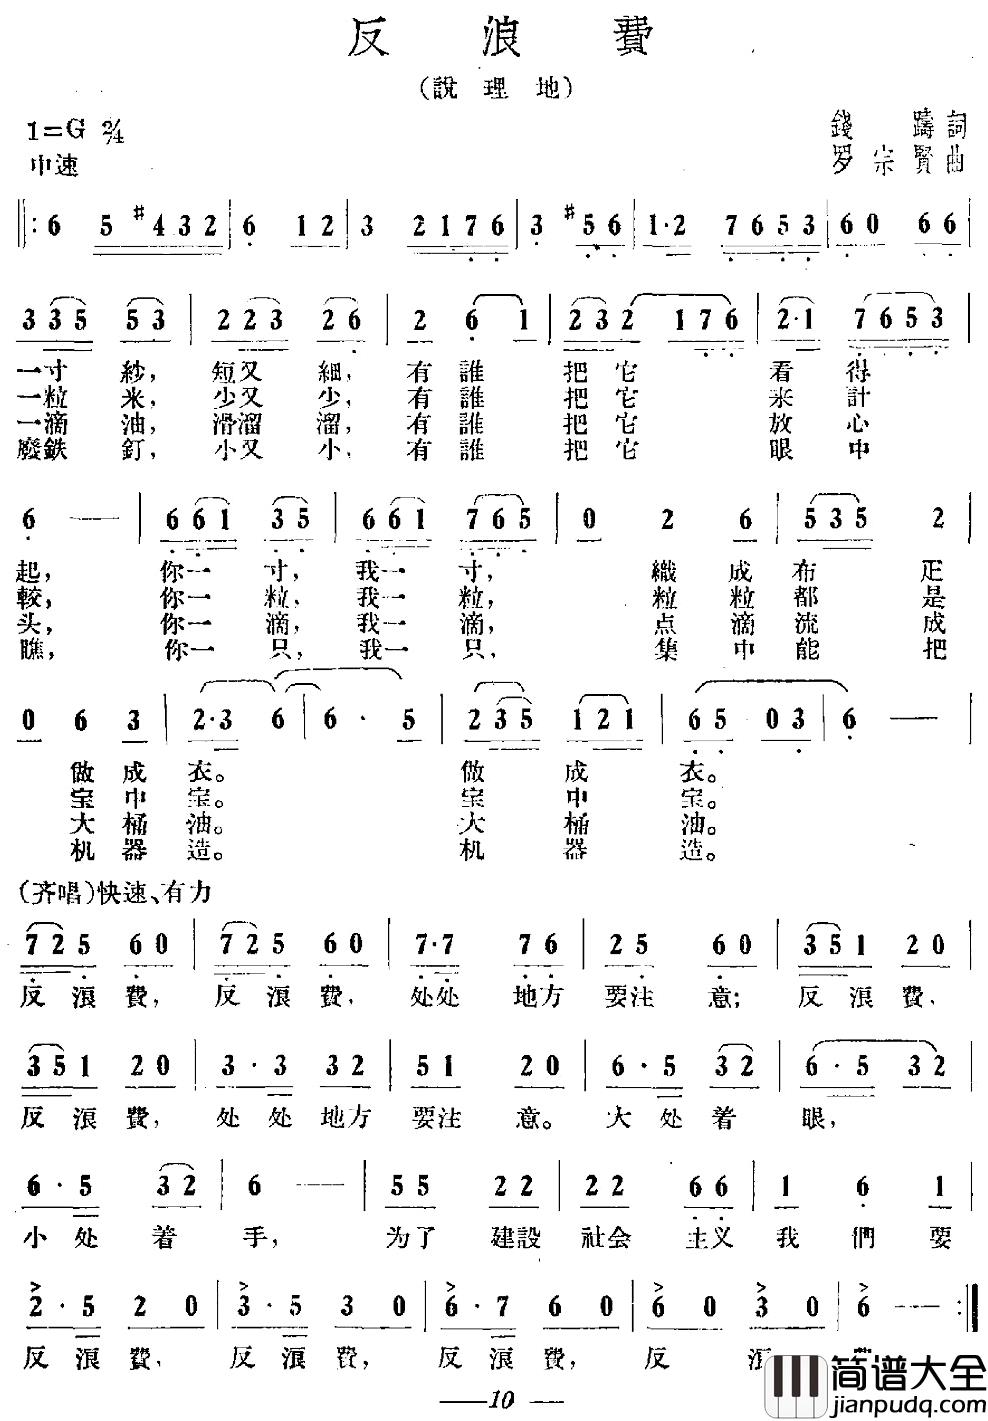 反浪費
(說理地)
1=G 2/4
錢 躊 詞
中速
罗宗賢 曲
‖: 6 5 #4 3 2 | 6 1 2 | 3 2 1 7 6 | 3 #5 6 | 1·2 7 6 5 3 | 6 0 6 6 |
3 3 5 5 3 | 2 2 3 2 6 | 2 6 1 | 2 3 2 1 7 6 | 2·1 7 6 5 3 |
一寸 紗, 短又 細, 有 誰 把 它 看 得
一粒 米, 少又 少, 有 誰 把 它 来 計
一滴 油, 滑溜 溜, 有 誰 把 它 放 心
廢鉄 釘, 小又 小, 有 誰 把 它 眼 中
6 — | 6 6 1 3 5 | 6 6 1 7 6 5 | 0 2 6 | 5 3 5 2 |
起, 你一 寸, 我一 寸, 織 成 布 疋
較, 你一 粒, 我一 粒, 粒 粒 都 是
头, 你一 滴, 我一 滴, 点 滴 流 成
瞧, 你一 只, 我一 只, 集 中 能 把
0 6 3 | 2·3 6 | 6 · 5 | 2 3 5 1 2 1 | 6 5 0 3 | 6 — |
做 成 衣。 做 成 衣。
宝 中 宝。 宝 中 宝。
大 桶 油。 大 桶 油。
机 器 造。 机 器 造。
(齐唱)快速、有力
7 2 5 6 0 | 7 2 5 6 0 | 7·7 7 6 | 2 5 6 0 | 3 5 1 2 0 |
反 浪 費, 反 浪 費, 处处 地方 要注 意; 反 浪 費,
3 5 1 2 0 | 3·3 3 2 | 5 1 2 0 | 6·5 3 2 | 6·5 3 2 |
反 浪 費, 处 处 地方 要注 意。 大 处 着 眼,
6·5 3 2 | 6 — | 5 5 2 2 | 2 2 6 6 | 1 6 1 |
小 处 着 手, 为了 建設 社会 主义 我 們 要
2·5 2 0 | 3·5 3 0 | 6·7 6 0 | 6 0 3 0 | 6 — :‖
反 浪 費, 反 浪 費, 反 浪 費, 反 浪
— 10 —
简谱大全
jianpudq.com